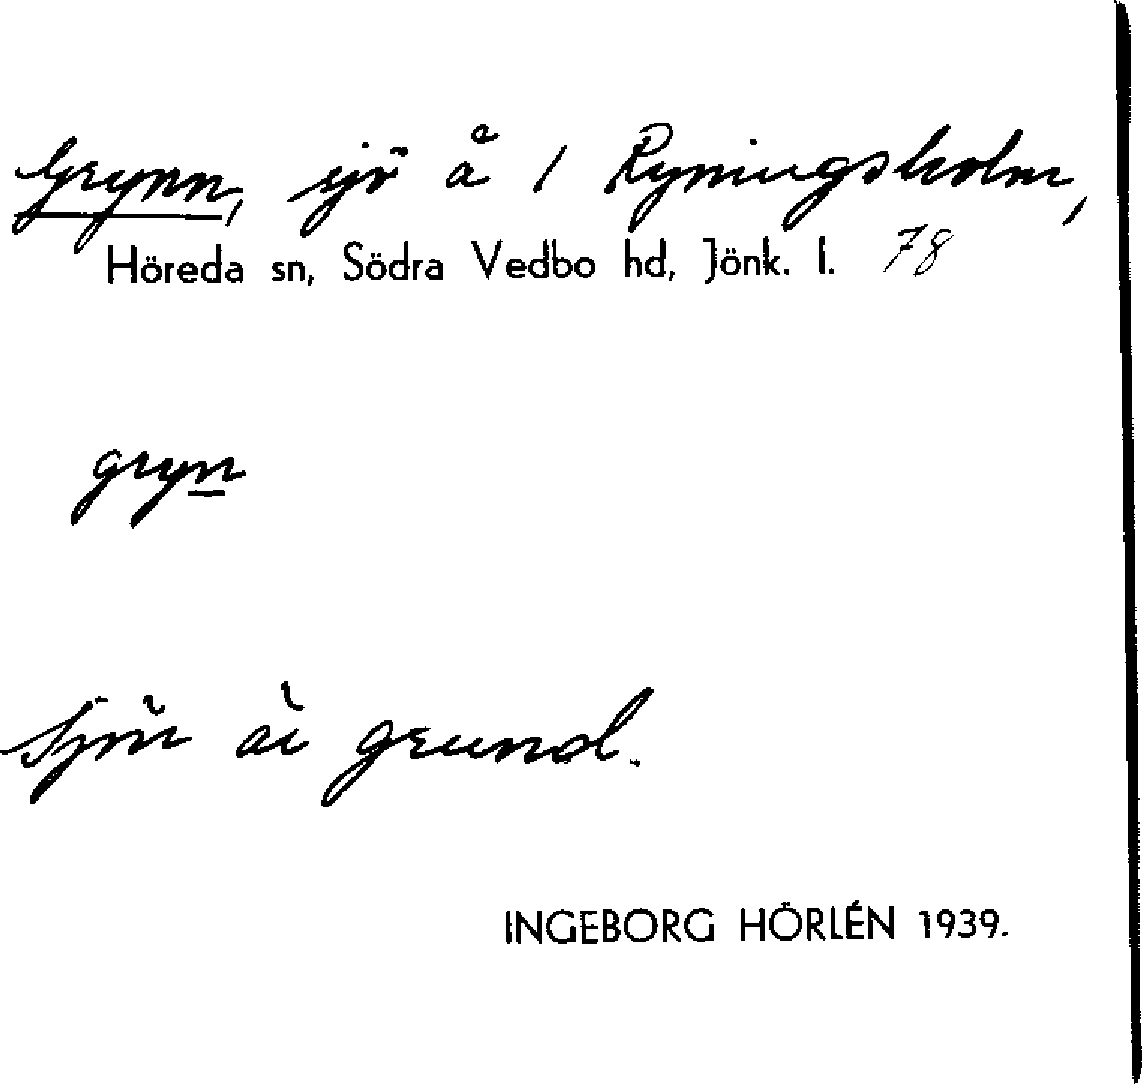 Grynn, sjö å 1 Ryningsholm,
Höreda sn, Södra Vedbo hd, Jönk. l. 78
gryn
Sjön är grund.
INGEBORG HÖRLÉN 1939.